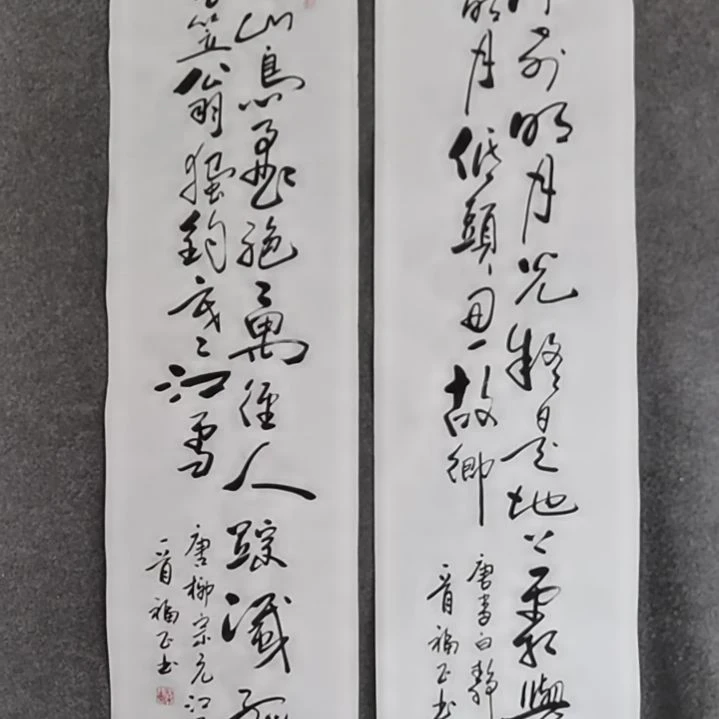 前明月光疑是地上霜舉
明月低頭思故鄉
唐李白靜
一首福正书
山鳥飛絕萬徑人踪滅孤
笠翁獨釣寒江雪
唐柳宗元江
一首福正书